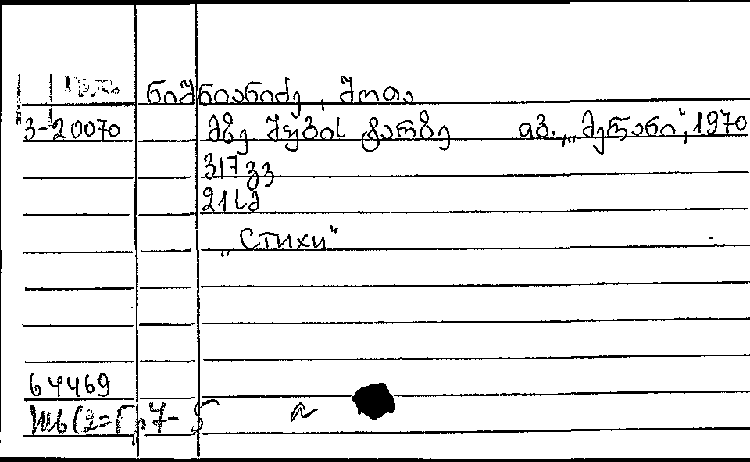 ნიშნიანიძე, შოთა
3-20070 მზე შუბის ტარზე თბ., „მერანი“, 1970
317 გვ
21 სმ
„Стихи“
67469
Ш6(2=Гр7-5